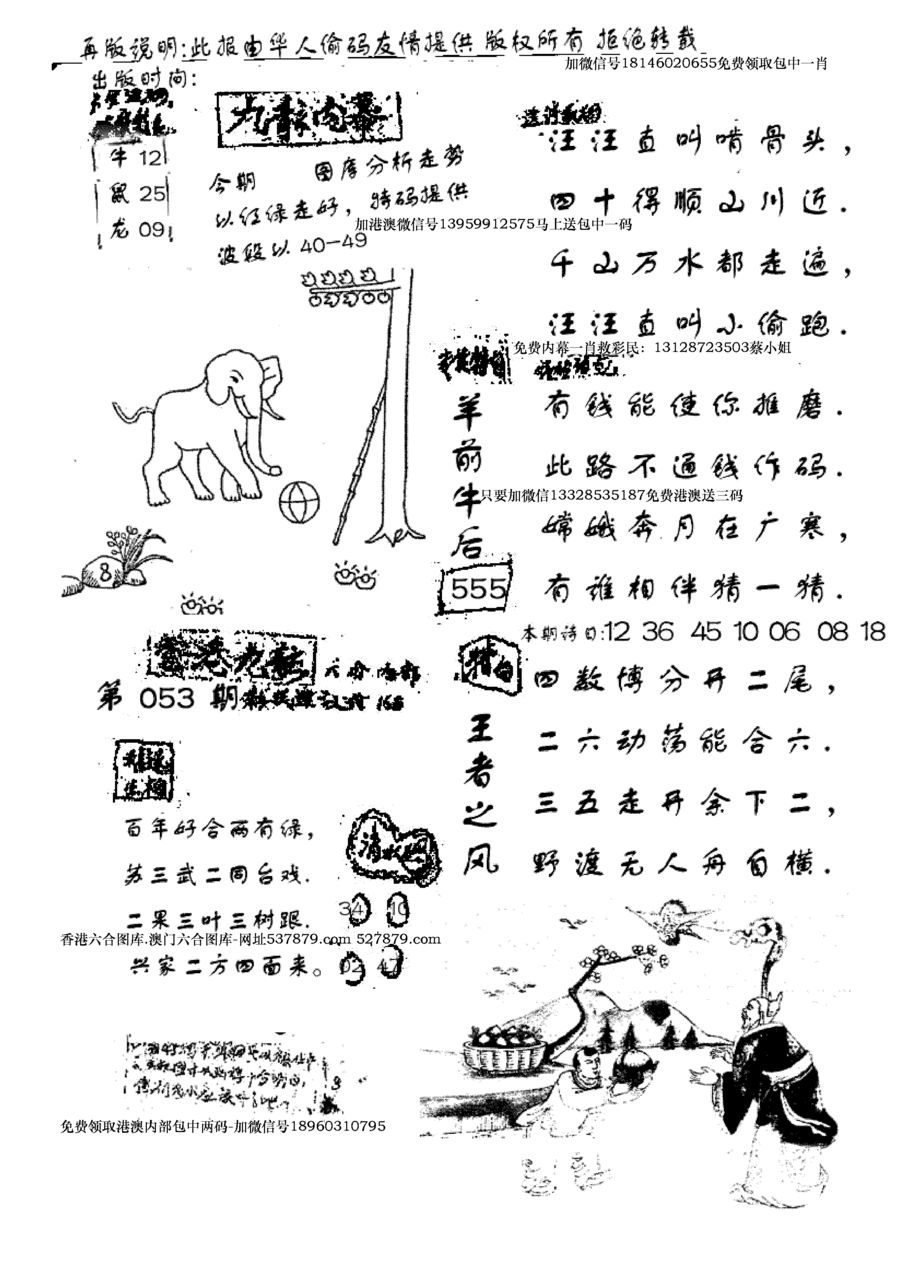 再版说明:此报由华人偷码友情提供 版权所有 拒绝转载
加微信号18146020655免费领取包中一肖
出版时间:
牛 12
鼠 25
龙 09
今期 图库分析走势
以红绿走好，特码提供
加港澳微信号13959912575马上送包中一码
波段以 40-49
汪汪直叫啃骨头，
四十得顺山川近.
千山万水都走遍，
汪汪直叫小偷跑.
免费内幕一肖救彩民：13128723503蔡小姐
羊前牛后
555
有钱能使你推磨.
此路不通钱作码.
只要加微信13328535187免费港澳送三码
嫦娥奔月在广寒，
有谁相伴猜一猜.
本期诗曰:12 36 45 10 06 08 18
8
第 053 期
王者之风
四数博分开二尾，
二六动荡能合六.
三五走开余下二，
野渡无人舟自横.
百年好合两有绿，
苏三武二同台戏.
二果三叶三树跟.
34 10
香港六合图库.澳门六合图库-网址537879.com 527879.com
兴家二方四面来。
02 47
免费领取港澳内部包中两码-加微信号18960310795